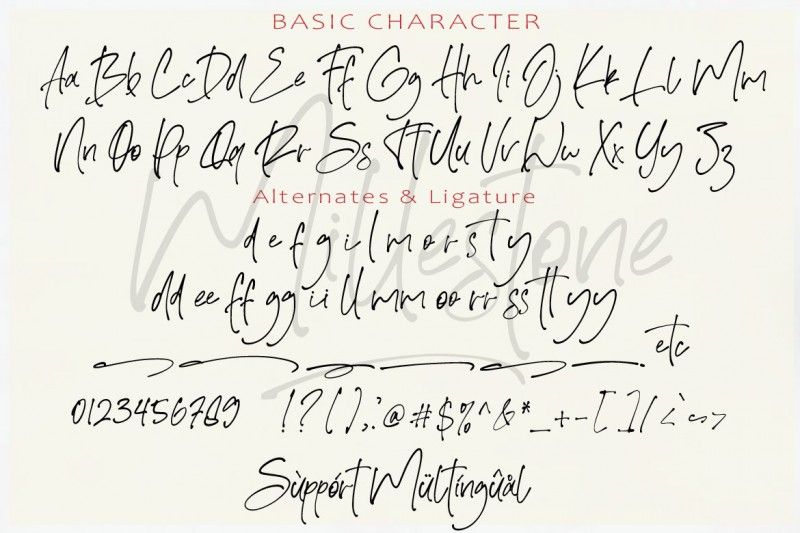 BASIC CHARACTER
Aa Bb Cc Dd Ee Ff Gg Hh Ii Jj Kk Ll Mm
Nn Oo Pp Qq Rr Ss Tt Uu Vv Ww Xx Yy Zz
Millestone
Alternates & Ligature
d e f g i l m o r s t y
dd ee ff gg ii ll mm oo rr ss tt yy
etc
0123456789
Sùppórt Mültíngûål